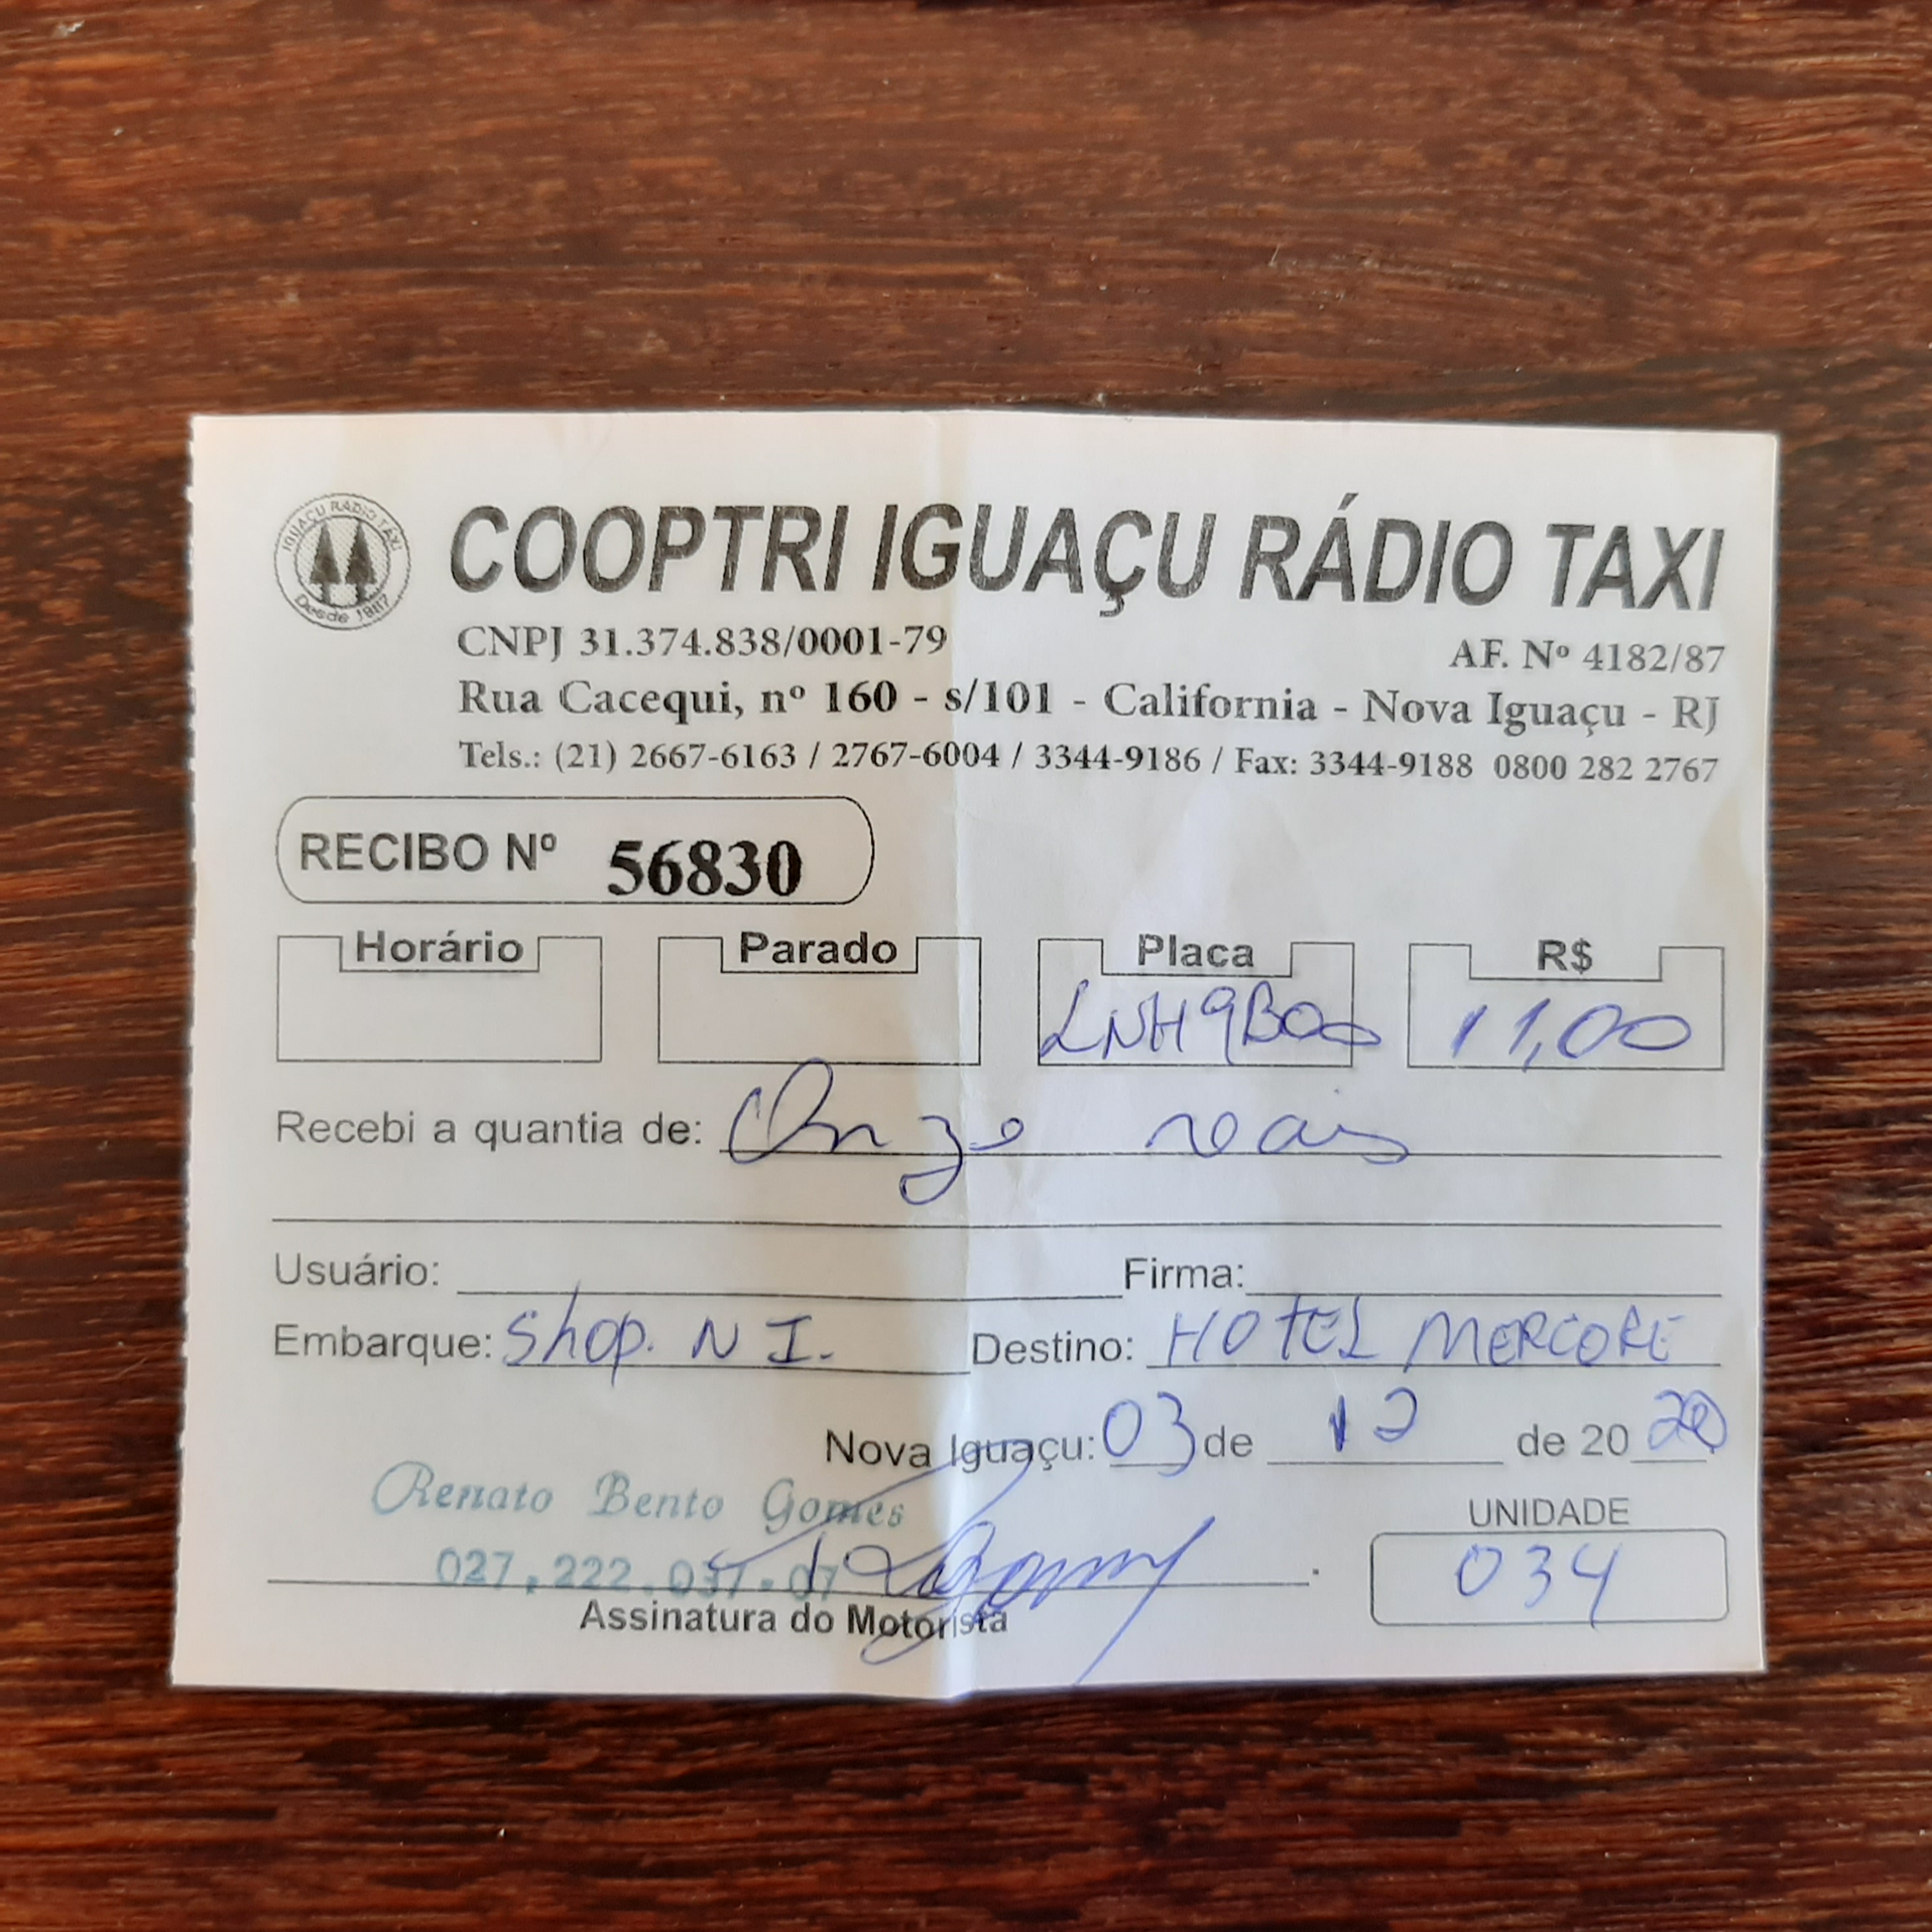 COOPTRI IGUAÇU RÁDIO TAXI
IGUAÇU RÁDIO TÁXI
Desde 1987
CNPJ 31.374.838/0001-79 AF. Nº 4182/87
Rua Cacequi, nº 160 - s/101 - California - Nova Iguaçu - RJ
Tels.: (21) 2667-6163 / 2767-6004 / 3344-9186 / Fax: 3344-9188 0800 282 2767
RECIBO Nº 56830
Horário Parado Placa R$
11,00
Recebi a quantia de: Onze reais
Usuário: Firma:
Embarque: Shop. N I. Destino: HOTEL MERCORE
Nova Iguaçu: 03 de 12 de 20 20
Renato Bento Gomes
UNIDADE
027.222.037.07
034
Assinatura do Motorista